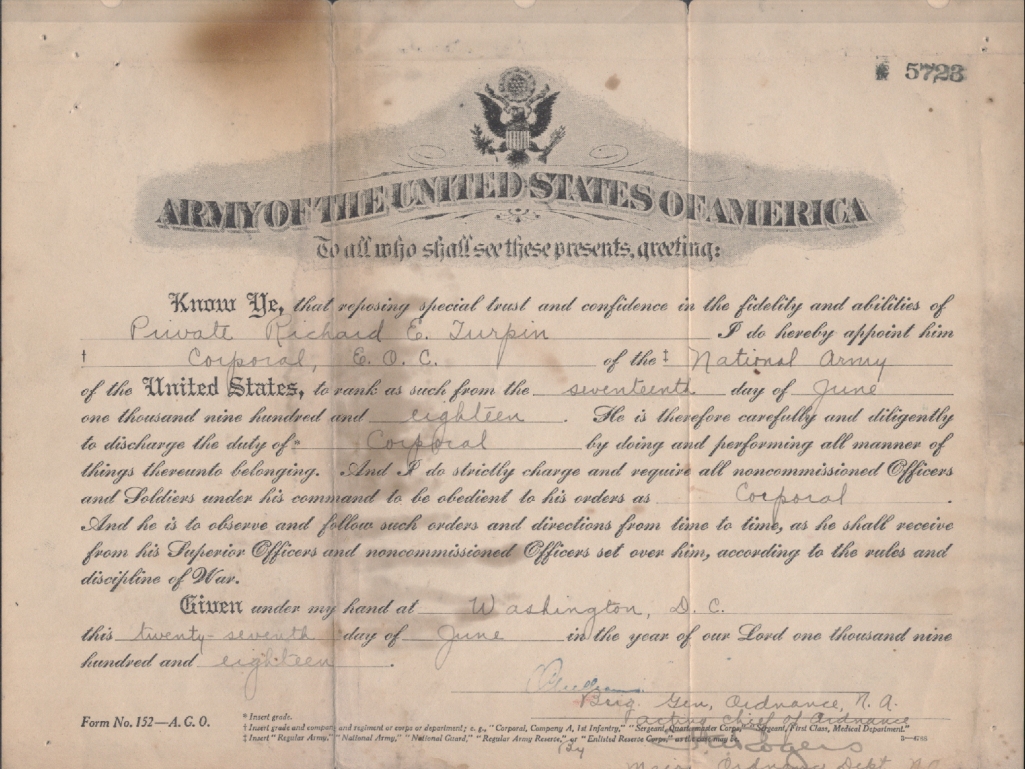 5723
ARMY OF THE UNITED STATES OF AMERICA
To all who shall see these presents, greeting:
Know Ye, that reposing special trust and confidence in the fidelity and abilities of
Private Richard E. Turpin I do hereby appoint him
† Corporal, E. O. C. of the ‡ National Army
of the United States, to rank as such from the seventeenth day of June
one thousand nine hundred and eighteen. He is therefore carefully and diligently
to discharge the duty of * Corporal by doing and performing all manner of
things thereunto belonging. And I do strictly charge and require all noncommissioned Officers
and Soldiers under his command to be obedient to his orders as Corporal.
And he is to observe and follow such orders and directions from time to time, as he shall receive
from his Superior Officers and noncommissioned Officers set over him, according to the rules and
discipline of War.
Given under my hand at Washington, D. C.
this twenty-seventh day of June in the year of our Lord one thousand nine
hundred and eighteen.
Brig. Gen, Ordnance, N. A.
acting chief of Ordnance
Form No. 152—A. G. O.
* Insert grade.
† Insert grade and company and regiment or corps or department; e. g., "Corporal, Company A, 1st Infantry," "Sergeant, Quartermaster Corps," "Sergeant, First Class, Medical Department."
‡ Insert "Regular Army," "National Army," "National Guard," "Regular Army Reserve," or "Enlisted Reserve Corps," as the case may be.
By Rogers
Major Ordnance Dept. N.A.